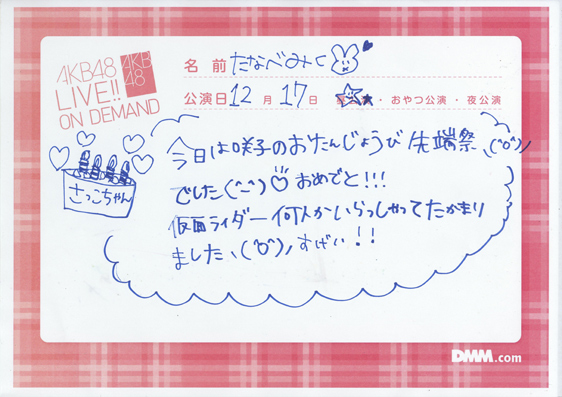 AKB48
LIVE!!
ON DEMAND
AKB
48
名 前 たなべみく
公演日 12 月 17 日 ・おやつ公演・夜公演
さっこちゃん
今日は咲子のおたんじょうび先端祭、(^o^)ノ
でした(^-^)♡おめでと!!!
仮面ライダー何人かいらっしゃってたかまり
ました、(^o^)ノすげい!!
DMM.com